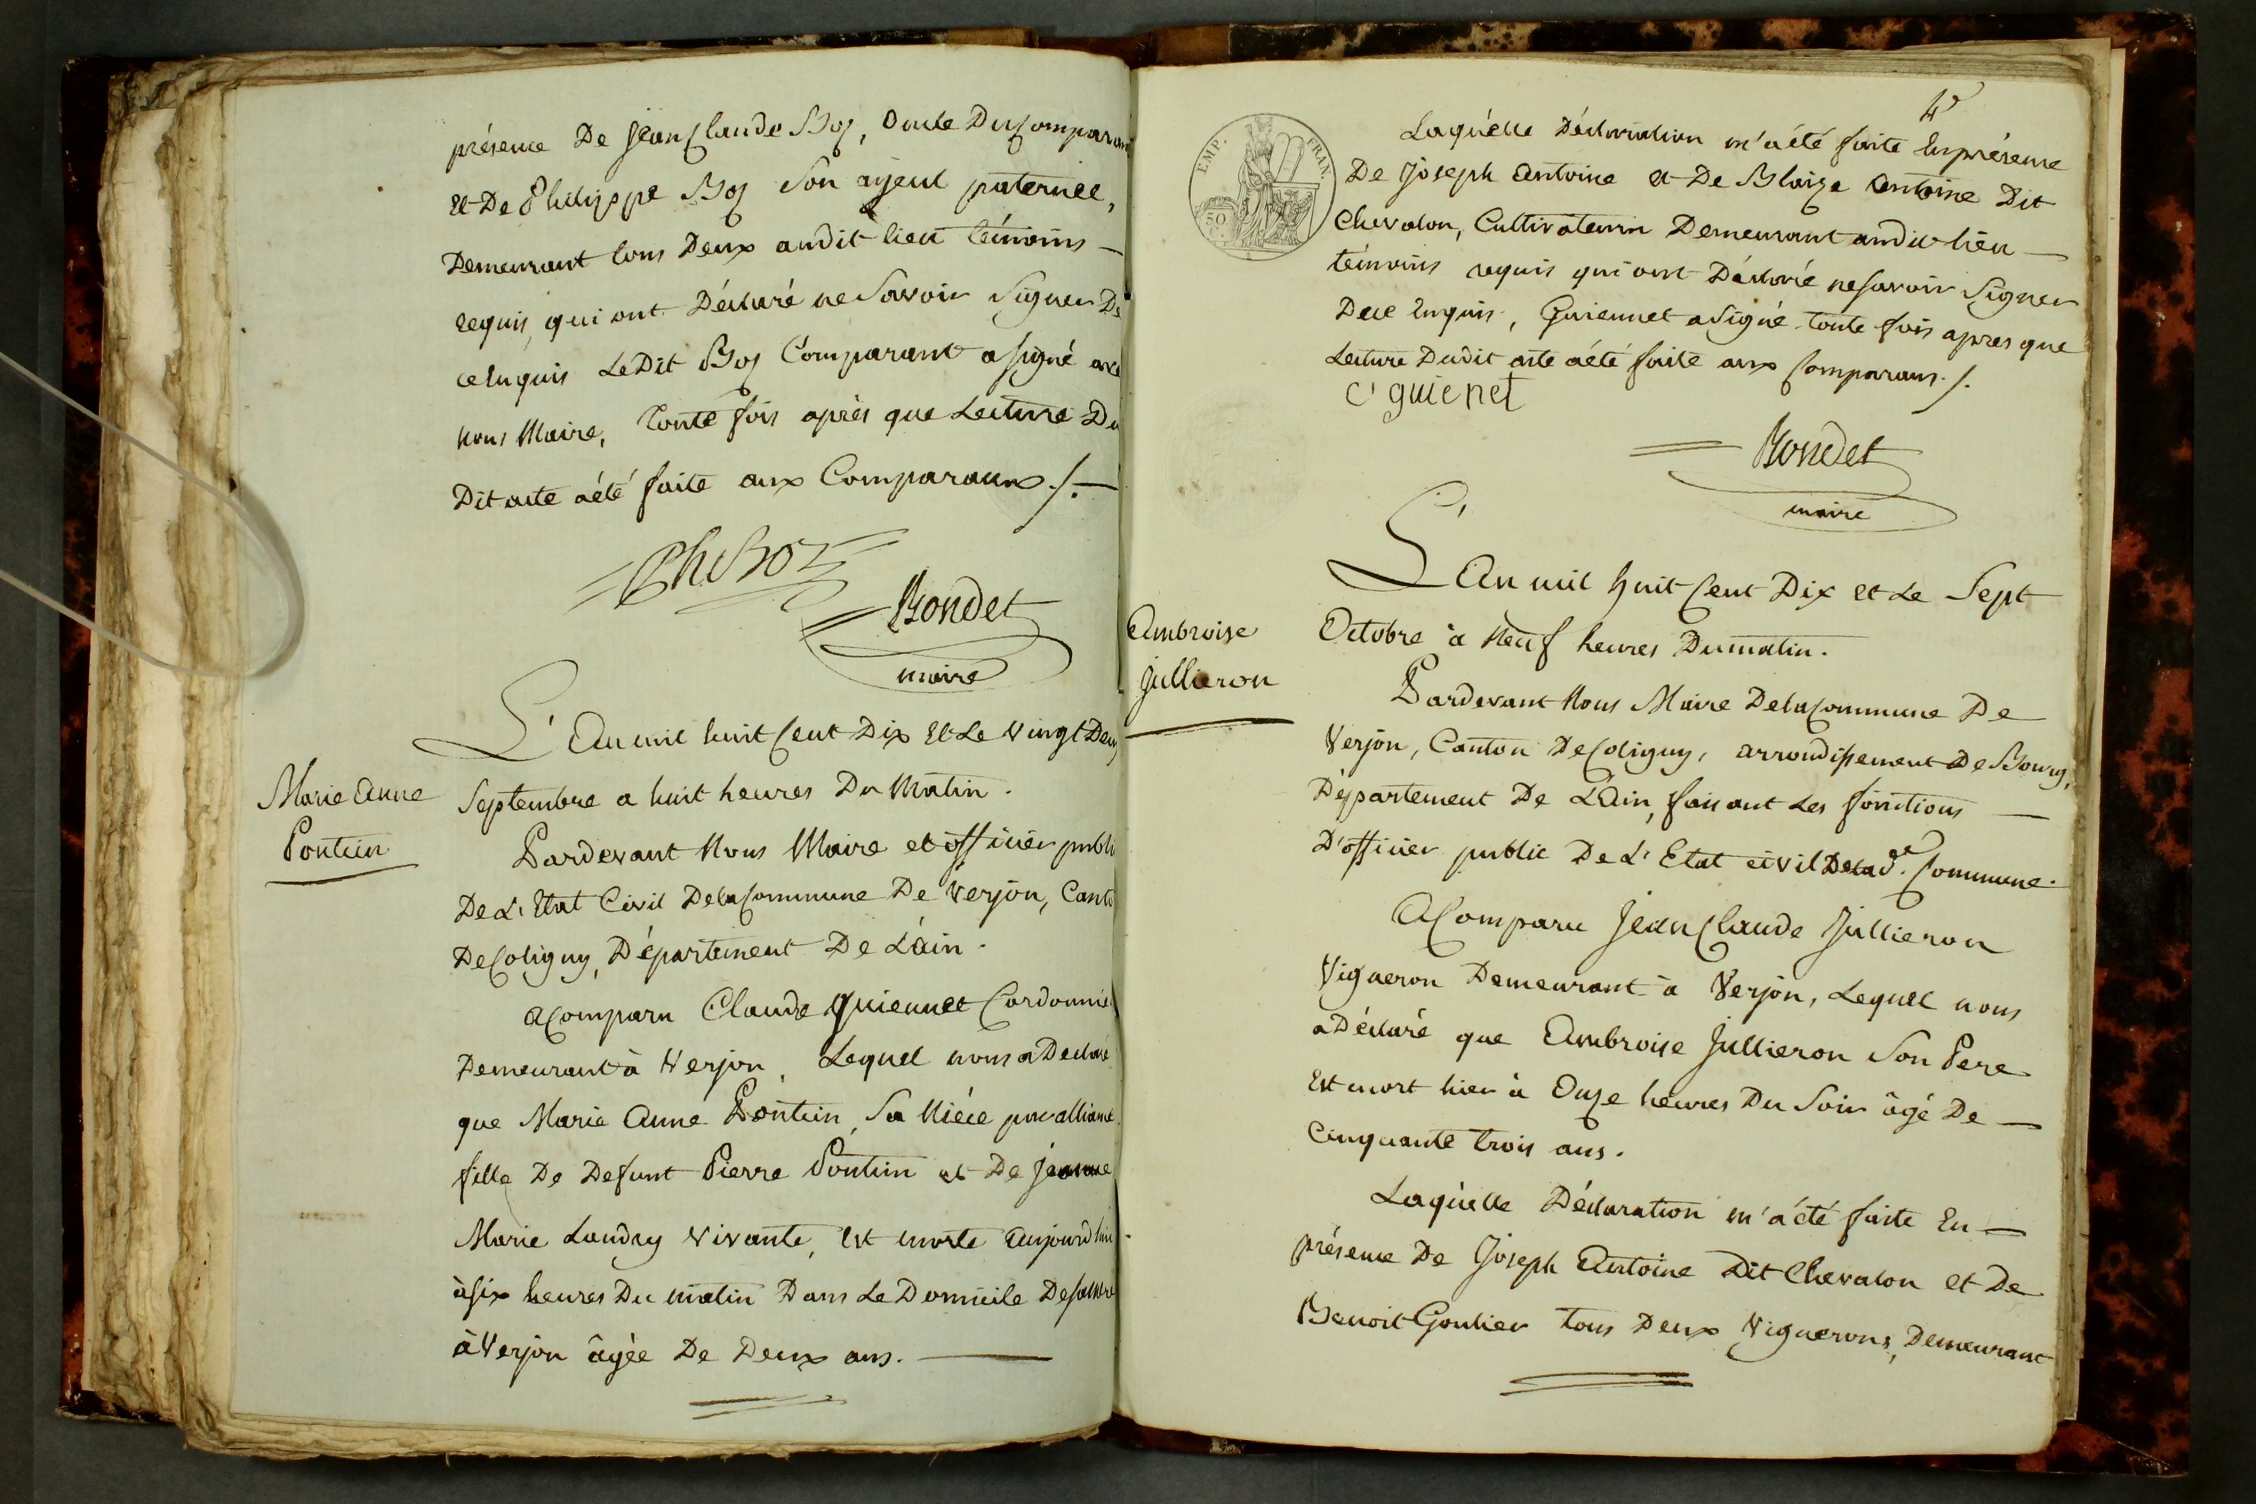 présence De Jean Claude Boz, oncle Du Comparant
Et De Philippe Boz Son ayeul paternel,
Demeurant tous Deux audit lieu témoins —
requis, qui ont Déclaré ne Savoir Signer De
ce Enquis Le Dit Boz Comparant a signé avec
nous Maire, Toute fois après que Lecture Du
Dit acte a été faite aux Comparans ./. —
Ph Boz
Bondet
maire
Marie Anne
Pontein
L'An mil huit Cent Dix Et Le Vingt Deux
Septembre a huit heures Du Matin.
Pardevant Nous Maire et officier public
De L'Etat Civil De la Commune De Verjon, Canto
De Coligny, Département De L'ain.
a Comparu Claude Guiennet Cordonnie
Demeurant à Verjon, Lequel nous a Déclaré
que Marie Anne Pontein, Sa Niéce par alliance
fille De Defunt Pierre Pontein et De Jeanne
Marie Landry Vivante, est morte aujourd'hui
à six heures Du matin Dans Le Domicile De sa Mere
à Verjon âgée De Deux ans. —
4e
EMP. FRAN.
50
Laquelle Déclaration m'a été faite En présence
De Joseph Antoine et De Blaize Antoine Dit
Chevalon, Cultivateurs Demeurant audit lieu —
témoins requis qui ont Déclaré ne savoir Signer
De ce Enquis, Guiennet a Signé Toute fois apres que
Lecture Dudit acte a été faite aux Comparans ./.
C guienet
Bondet
maire
Ambroise
Jullieron
L'An mil huit Cent Dix et Le Sept
Octobre à Neuf heures Du matin.
Pardevant Nous Maire De la Commune De
Verjon, Canton De Coligny, arrondissement De Bourg,
Département De L'Ain, faisant Les fonctions —
D'officier public De L'Etat civil De la de. Commune.
A Comparu Jean Claude Jullieron
Vigneron Demeurant à Verjon, Lequel nous
a Déclaré que Ambroise Jullieron Son Pere
Est mort hier à Onze heures Du Soir âgé De —
Cinquante trois ans.
Laquelle Déclaration m'a été faite En —
présence De Joseph Antoine Dit Chevalon et De
Benoit Goutier Tous Deux Vignerons, Demeurant